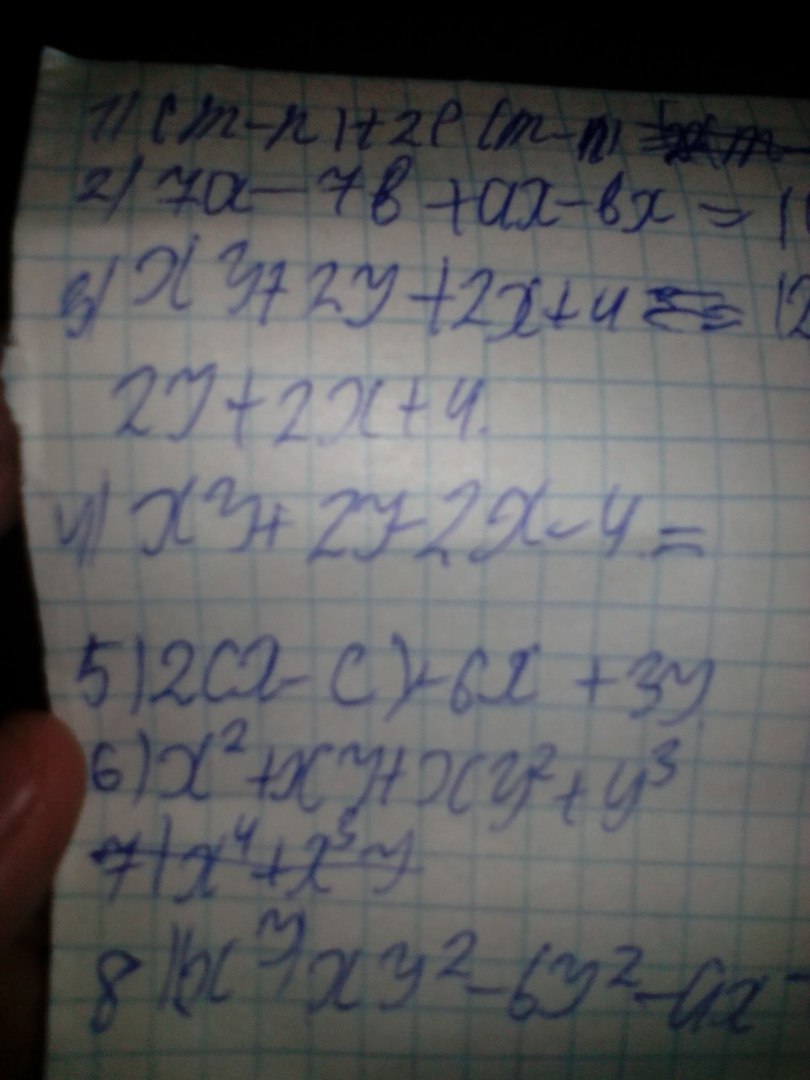 1) (m-n)+2p(m-n)
2) 7a-7в+ax-вx = 1
3) xy+2y+2x+4 = 12
2y+2x+4.
4) xy+2y-2x-4=
5) 2cx-c)-6x+3y
6) x²+xy+xy²+y³
7) x⁴+x³y
xy²-6y²-ax-